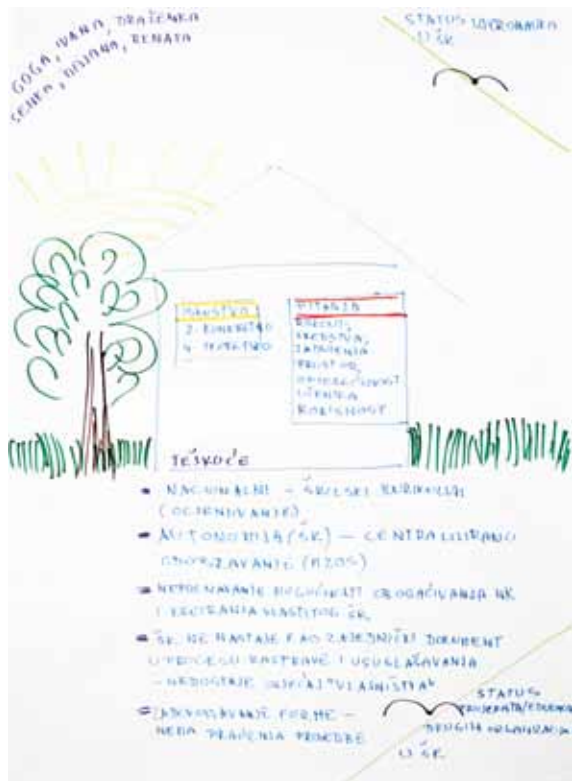 GOGA, IVANA, DRAŽENKA
SENKA, DIJANA, RENATA
STATUS
U ŠK
ISKUSTVA
2 - KONKRETNO
4 - TEORETSKO
PITANJA
SREDSTVA,
ZADUŽENJA
PROSTOR,
UČENIKA
KORISNOST
TEŠKOĆE
NACIONALNI - ŠKOLSKI KURIKULUM
(OCJENJIVANJE)
AUTONOMIJA (ŠK) - CENTRALIZIRANO
ODOBRAVANJE (MZOS)
NEPOZNAVANJE MOGUĆNOSTI OBOGAĆIVANJA NK
I KREIRANJA VLASTITOG ŠK
ŠK NE NASTAJE KAO ZAJEDNIČKI DOKUMENT
U PROCESU RASPRAVE I USUGLAŠAVANJA
- NEDOSTAJE OSJEĆAJ "VLASNIŠTVA"
ZADOVOLJAVANJE FORME -
NEMA PRAĆENJA PROVEDBE
STATUS
PROJEKATA/EDUKACIJA
DRUGIH ORGANIZACIJA
U ŠK